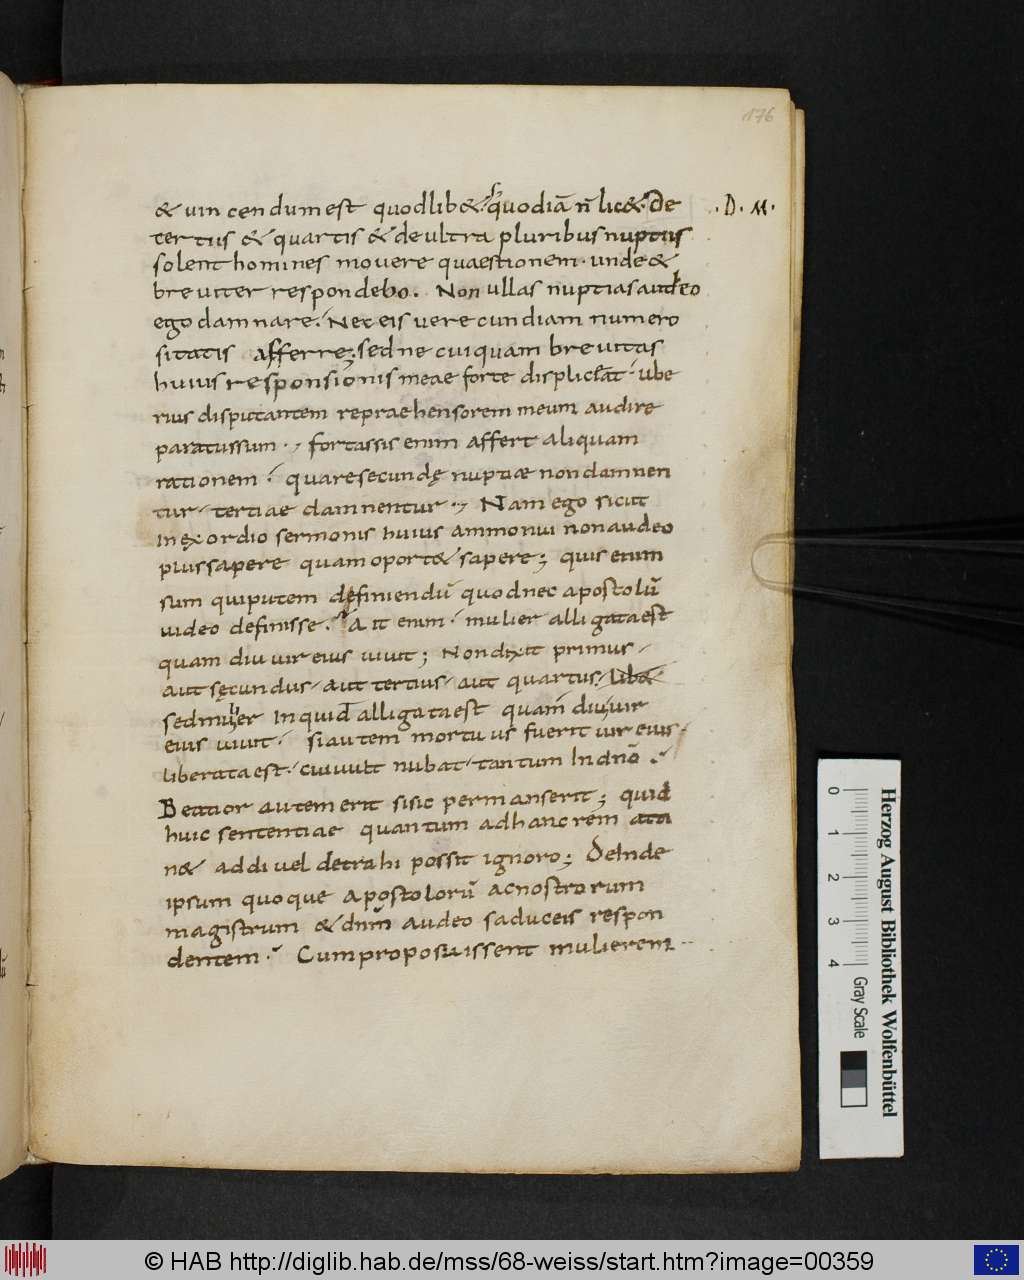 176
& uincendum est quodlib& quodiā n̄ lic& De .D.M.
tertiis & quartis & de ultra pluribus nuptiis
solent homines mouere quaestionem· unde &
breuiter respondebo. Non ullas nuptias audeo
ego damnare. Nec eis uerecundiam numero
sitatis afferre; sed ne cuiquam breuitas
huius responsionis meae forte displiceat· ube
rius disputantem repraehensorem meum audire
paratus sum· fortassis enim affert aliquam
rationem· quare secundę nuptiae non damnen
tur· tertiae damnentur· Nam ego sicut
in exordio sermonis huius ammonui non audeo
plus sapere quam oport& sapere; quis enim
sum qui putem definiendū quod nec apostolū
uideo definisse. Ait enim· mulier alligata est
quam diu uir eius uiuit; Non dixit primus·
aut sęcundus· aut tertius· aut quartus·
sed mulier inquid alligata est quam diu uir
eius uiuit· si autem mortuus fuerit uir eius·
liberata est· cui uult nubat· tantum in dn̄o
Beatior autem erit si sic permanserit; quid
huic sententiae quantum ad hanc rem atti
n& addi uel detrahi possit ignoro; Deinde
ipsum quoque apostolorū ac nostrorum
magistrum & dnm̄ audeo saduceis respon
dentem· Cum proposuissent mulierem
Herzog August Bibliothek Wolfenbüttel
0 1 2 3 4 Gray Scale
© HAB http://diglib.hab.de/mss/68-weiss/start.htm?image=00359